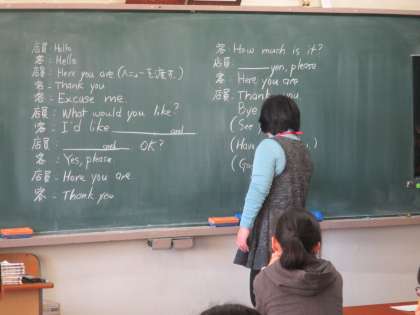 店員: Hello
客: Hello
店員: Here you are (メニューを渡す.)
客 - Thank you
客 - Excuse me.
店員: What would you like?
客 - I'd like ______ and ______
店員: ______ and ______ OK?
客: Yes, please.
店員 - Here you are
客 - Thank you
客: How much is it?
店員: ______ yen, please.
客: Here you are
店員: Thank you
Bye
(See
(Have